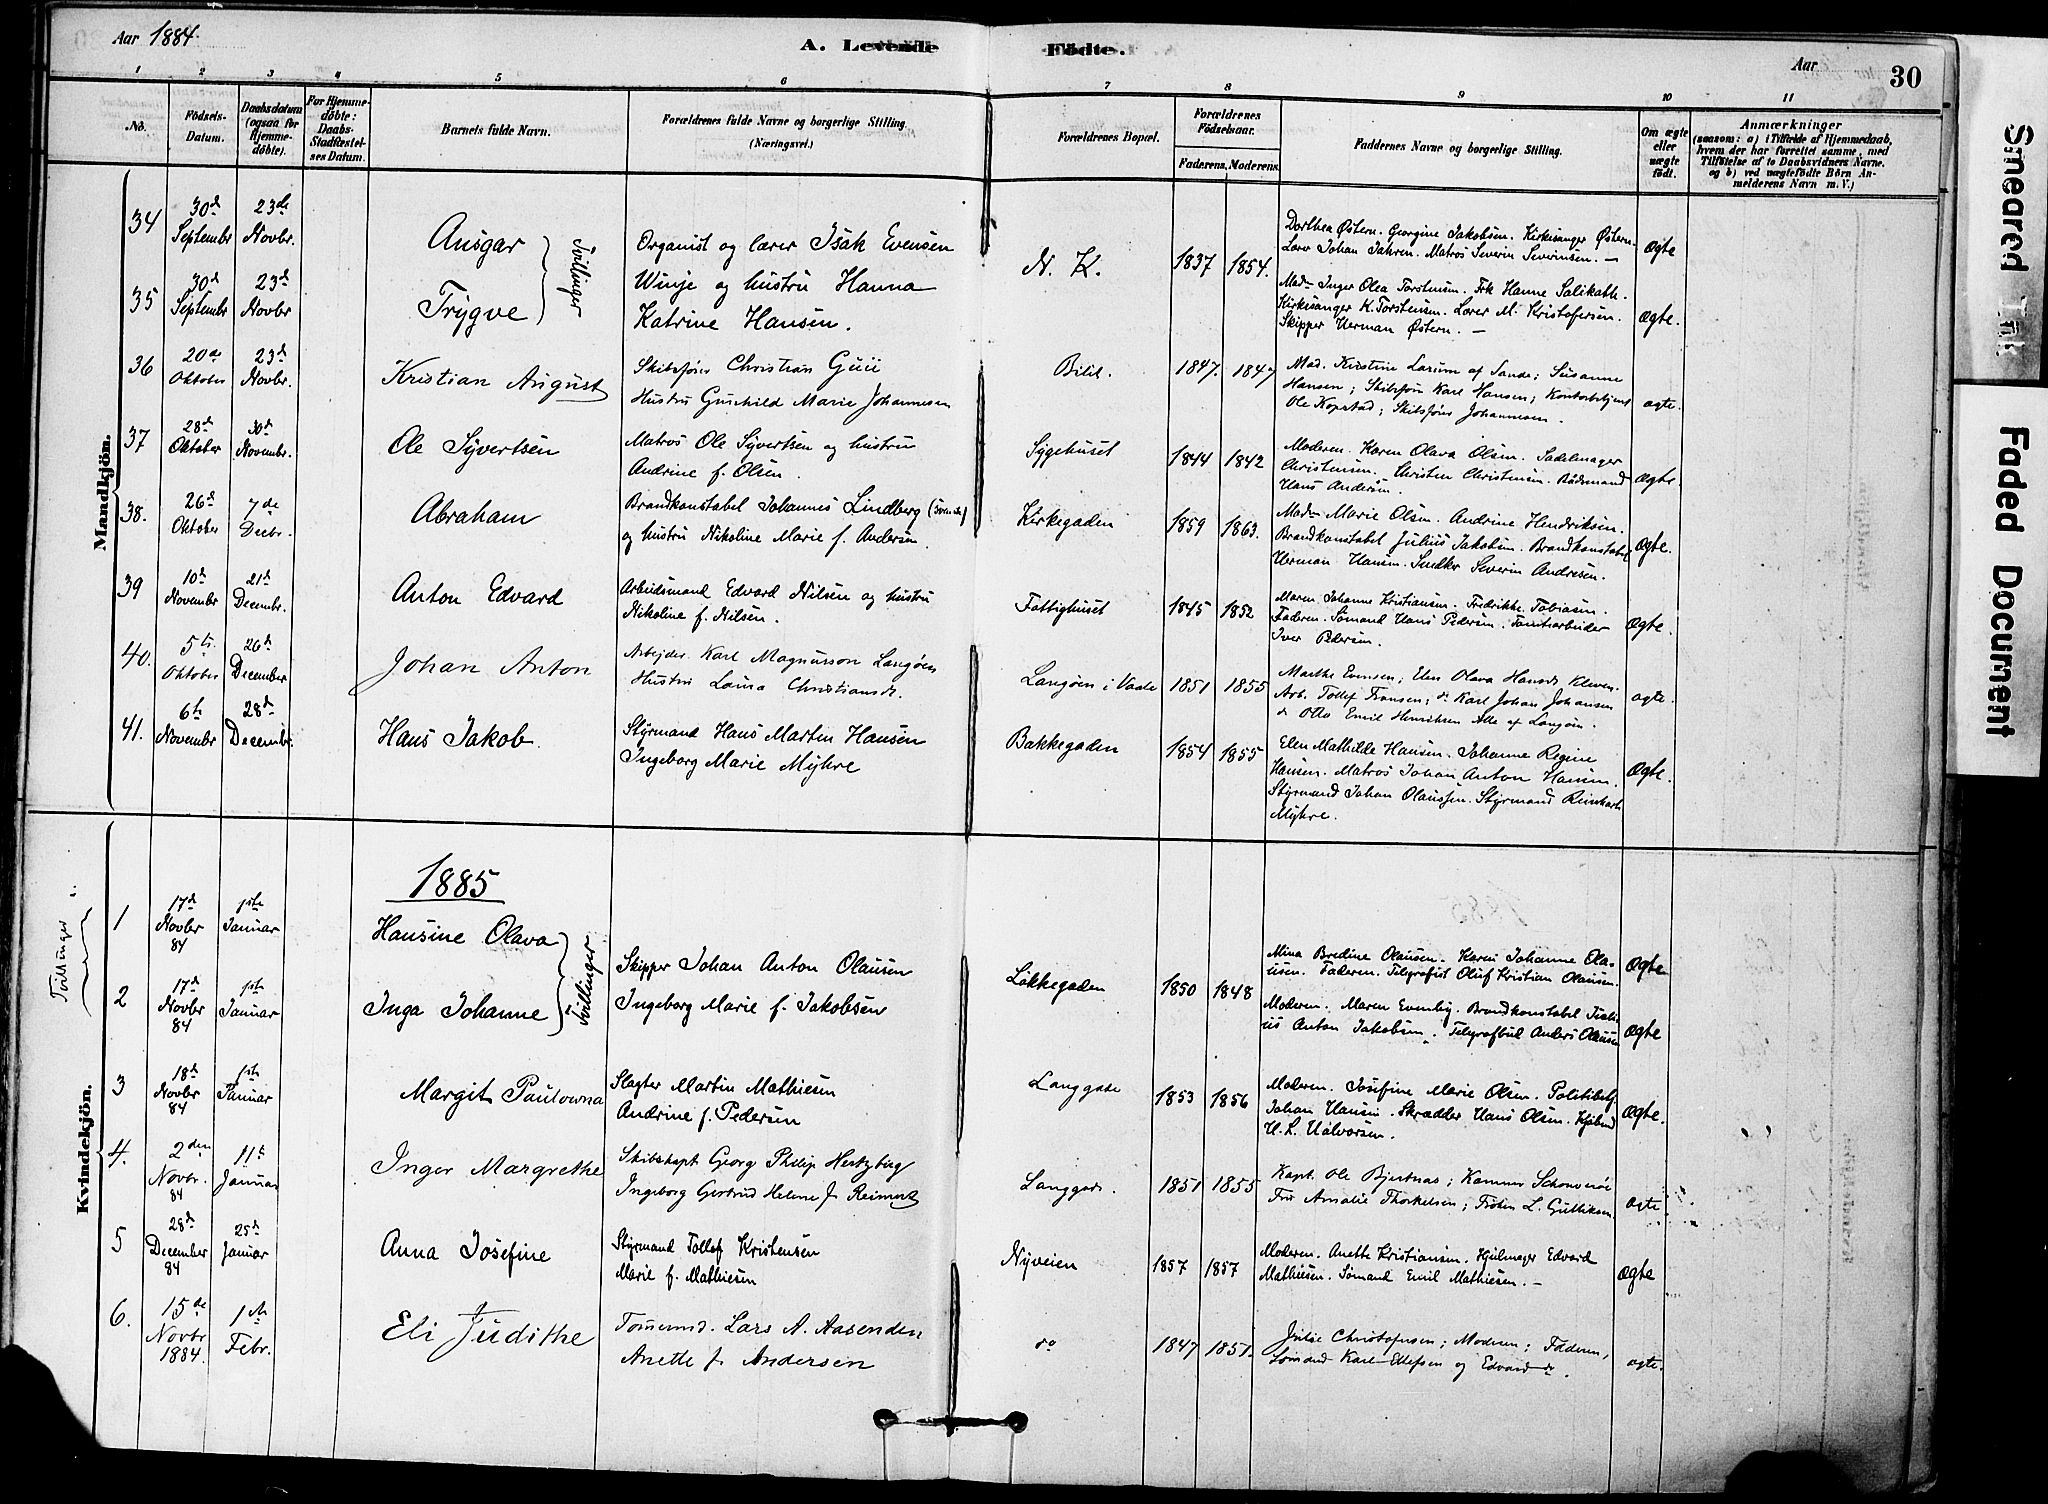 Aar 1884.
A. Levende Födte.
Aar
30
1 2 3 4 5 6 7 8 9 10 11
No.
Födsels-Datum.
Daabsdatum (ogsaa for Hjemmedöbte).
For Hjemmedöbte: Daabs-Stadfæstelses Datum.
Barnets fulde Navn.
Forældrenes fulde Navne og borgerlige Stilling. (Næringsvei.)
Forældrenes Bopæl.
Forældrenes Födselsaar.
Faderens. Moderens.
Faddernes Navne og borgerlige Stilling.
Om ægte eller uægte födt.
Anmærkninger
(saasom: a) i Tilfælde af Hjemmedaab,
hvem der har forrettet samme, med
Tilföielse af to Daabsvidners Navne.
og b) ved uægtefödte Börn An-
melderens Navn m. V.)
Mandkjön.
34 30d Septembr 23de Novbr. Ansgar
Tvillinger
Organist og lærer Isak Evensen
Winje og hustru Hanna
Katrine Hansen.
N. K. 1837 1854.
Dorthea Østern. Georgine Jakobsen. Kirkesanger Østern.
Lærer Johan Jahren. Matros Severin Severinsen. —
Ægte
35 30d Septembr 23d Novbr Trygve
Madm Inger Olea Torstensen. Frk Hanne Salikath.
Kirkesanger K. Torstensen. Lærer M. Kristofersen.
Skipper Herman Østern. —
Ægte.
36 20de Oktober 23d Novbr. Kristian August
Skibsfører Christian Guii
Hustru Gunhild Marie Johannesen
Bilit. 1847. 1847
Mad. Kirstine Larum af Sande; Susanne
Hansen; Skibsfør Karl Hansen; Kontorbetjent
Ole Kopstad; Skibsfører Johannesen.
ægte.
37 28d Oktober 30d Novembr. Ole Syvertsen
Matros Ole Syvertsen og hustru
Andrine f. Olsen.
Sygehuset 1844 1842
Moderen. Karen Olava Olsen. Sadelmager
Christensen. Christen Christensen. Bødsmand
Hans Andersen.
Ægte.
38. 26d Oktober 7de Decbr. Abraham
Brandkonstabel Johannes Lindberg (svensk)
og hustru Nikoline Marie f. Andersen.
Kirkegaden 1859 1863.
Madm Marie Olsen. Andrine Hendriksen.
Brandkonstabel Julius Jakobsen. Brandkonstabel
Herman Hansen. Snedker Severin Andresen.
Ægte.
39 10d Novembr 21d Decembr. Anton Edvard
Arbeidsmand Edvard Nilsen og hustru
Nikoline f. Nilsen.
Fattighuset 1845 1852
Maren Johanne Kristiansen. Fredrikke Tobiasen.
Faderen. Sømand Hans Pedersen. Tomtearbeider
Iver Pedersen.
Ægte.
40. 5te Oktober 26d December Johan Anton
Arbejder. Karl Magnusson Langøen
Hustru Laura Christiansdr.
Langøen i Vaale 1851 1855
Marthe Evensen; Elen Olava Hansdr. Kleven.
Arb. Tollef Fransen; do Karl Johan Johansen
do Otto Emil Henriksen Alle af Langøen.
ægte.
41. 6te Novembr 28d Decembr. Hans Jakob.
Styrmand Hans Martin Hansen
Ingeborg Marie Myhre
Bakkegaden 1854 1855
Elen Mathilde Hansen. Johanne Regine
Hansen. Matros Johan Anton Hansen.
Styrmand Johan Olaussen. Styrmand Reinhardt
Myhre.
Ægte.
1885
Kvindekjön.
Tvillinger
1 17d Novbr 84 1ste Januar Hansine Olava
Tvillinger
Skipper Johan Anton Olausen
Ingeborg Marie f. Jakobsen
Løkkegaden 1850 1848
Mina Bredine Olausen. Karen Johanne Ola-
usen. Faderen. Telegrafist Oluf Kristian Olausen.
Ægte
2 17d Novbr 84 1ste Januar Inga Johanne
Moderen. Maren Evenby. Brandkonstabel Juli-
us Anton Jakobsen. Telegrafbud Anders Olausen
Ægte
3 18d Novbr 84 1ste Januar Margit Paulowna
Slagter Martin Mathiesen
Andrine f. Pedersen
Langgade 1853 1856
Moderen. Josefine Marie Olsen. Politibetj.
Johan Hansen. Skrædder Hans Olsen. Kjøbmd
H. L. Halvorsen.
Ægte.
4. 2den Novbr. 84 11te Januar Inger Margrethe
Skibskapt Georg Philip Hertzberg
Ingeborg Gertrud Helene f. Reimert
Langgade. 1851 1855
Kapt. Ole Bjertnæs;
Fru Amalie Thorkelsen; Frøken L. Gulliksen.
ægte
5 28d December 84 25d Januar Anna Josefine
Styrmand Tollef Kristensen
Marie f. Mathiesen
Nyveien 1857 1857
Moderen. Anette Kristiansen. Hjulmager Edvard
Mathiesen. Sømand Emil Mathiesen. —
Ægte
6. 15de Novbr 1884. 1ste Febr. Eli Judithe
Tømmermd. Lars A. Aasenden
Anette f. Andersen
do 1847 1851.
Julie Christofersen; Moderen; Faderen,
Sømand Karl Ellefsen og Edvard do.
ægte.
Smeared Ink
Faded Document